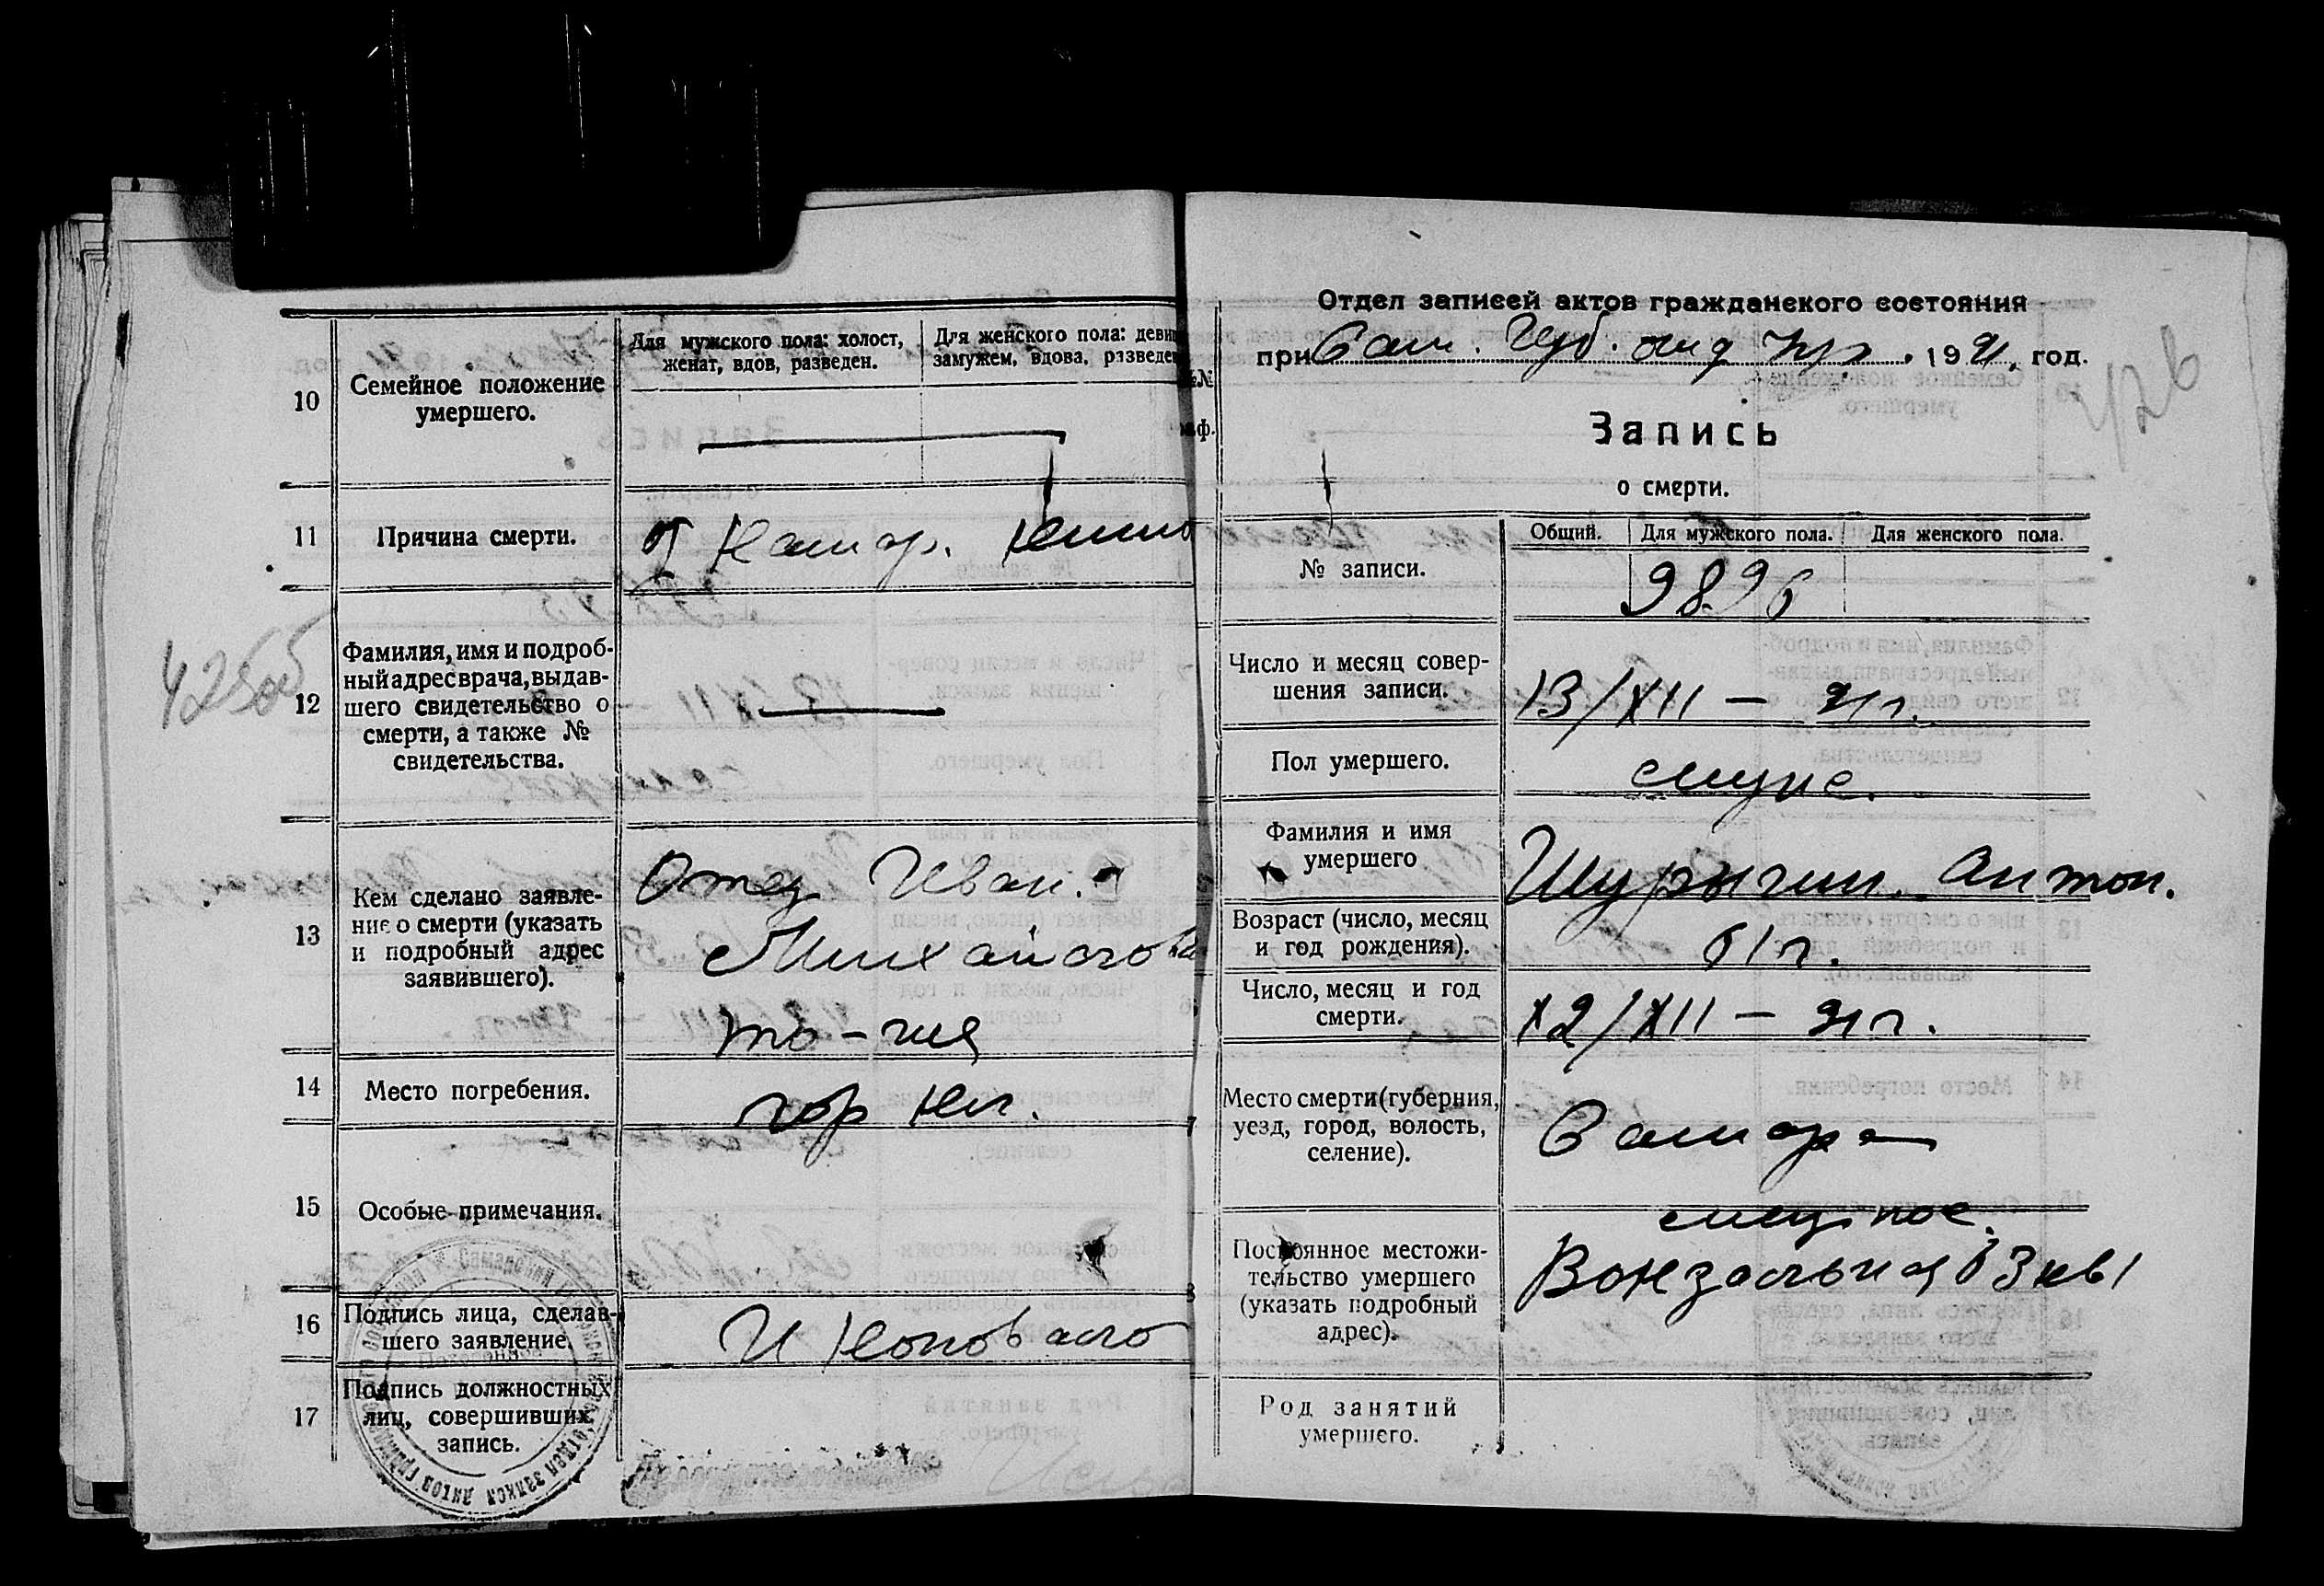 10
Семейное положение
умершего.
Для мужского пола: холост,
женат, вдов, разведен.
Для женского пола: девиц
замужем, вдова, разведен
11
Причина смерти.
от Катар. кишо
12
Фамилия, имя и подроб-
ный адрес врача, выдав-
шего свидетельство о
смерти, а также №
свидетельства.
13
Кем сделано заявле-
ние о смерти (указать
и подробный адрес
заявившего).
Отец Иван.
Михайлов
14
Место погребения.
гор кл.
15
Особые примечания.
16
Подпись лица, сделав-
шего заявление.
И Коновало
17
Подпись должностных
лиц, совершивших
запись.
Отдел записей актов гражданского состояния
при Сам. Губ. отд Упр. 1921 год.
Запись
о смерти.
№ записи.
Общий.
Для мужского пола.
Для женского пола.
9896
Число и месяц совер-
шения записи.
13/XII — 21г.
Пол умершего.
муже.
Фамилия и имя
умершего
Шурыгин. Антон.
Возраст (число, месяц
и год рождения).
61г.
Число, месяц и год
смерти.
12/XII — 21г.
Место смерти (губерния,
уезд, город, волость,
селение).
Самара
Постоянное местожи-
тельство умершего
(указать подробный
адрес).
Вокзальная 63 кв 1
Род занятий
умершего.